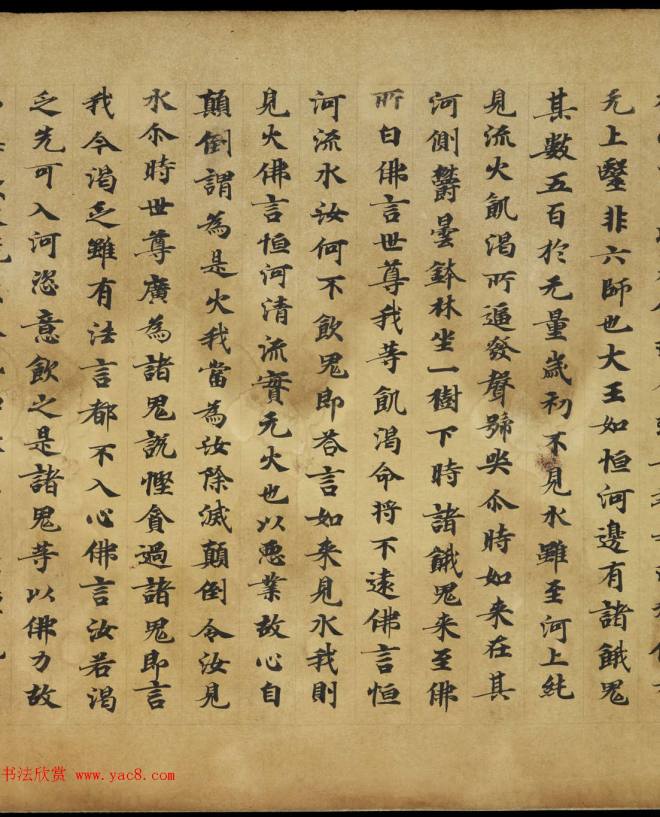 无上毉非六師也大王如恒河邊有諸餓鬼
其數五百於无量歲初不見水雖至河上純
見流火飢渴所逼發聲號哭尒時如来在其
河側欝曇鉢林坐一樹下時諸餓鬼来至佛
所白佛言世尊我等飢渴命将不遠佛言恒
河流水汝何不飲鬼即荅言如来見水我則
見火佛言恒河清流實无火也以悪業故心自
顛倒謂為是火我當為汝除滅顛倒令汝見
水尒時世尊廣為諸鬼説慳貪過諸鬼即言
我今渴乏雖有法言都不入心佛言汝若渴
乏先可入河恣意飲之是諸鬼等以佛力故
书法欣赏 www.yac8.com